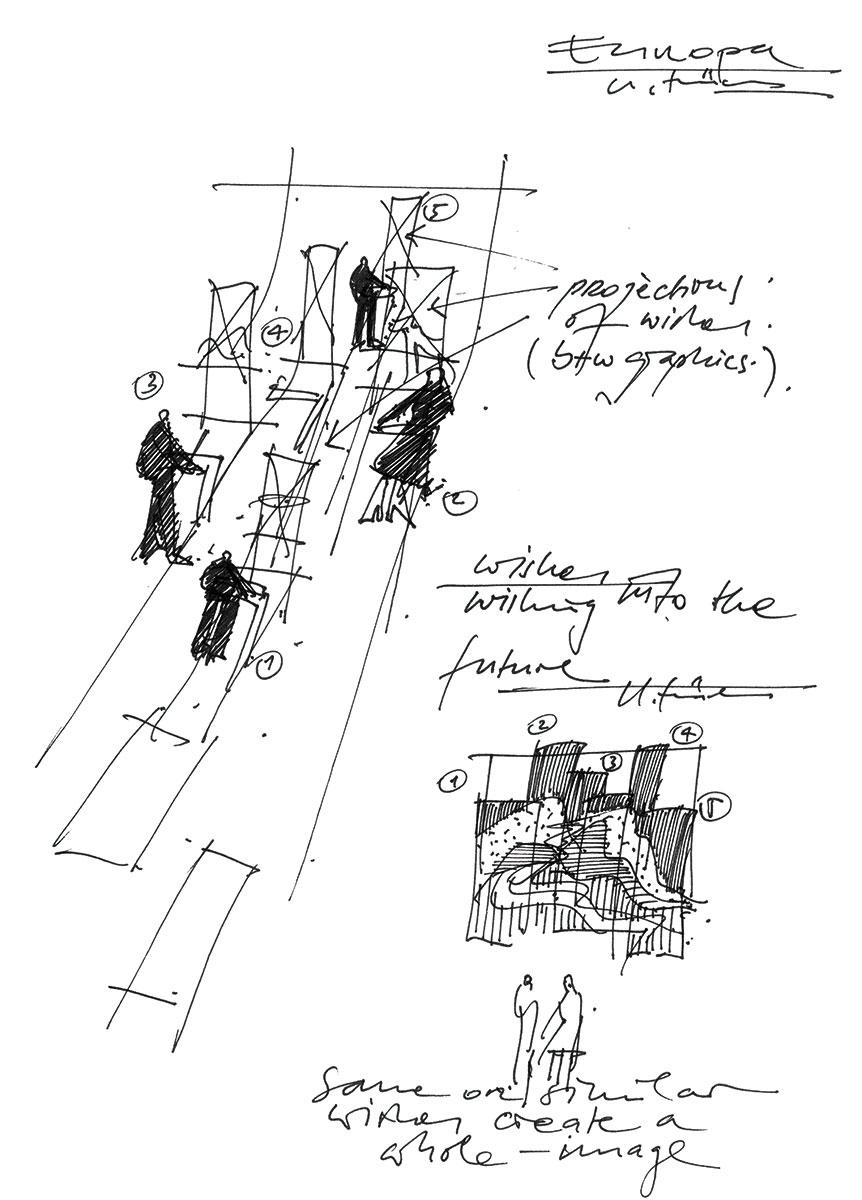 Europa
5
projections
of wishes.
(b+w graphics.).
4
3
2
1
wishes
wishing into the
future
2
4
3
1
5
same or similar
wishes create a
whole-image